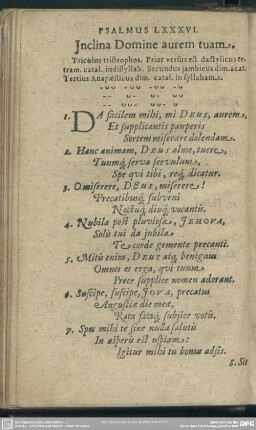 PSALMUS LXXXVI.
Inclina Domine aurem tuam.
Tricolos tristrophos. Prior versus est dactylicus te-
tram. catal. in disyllab. Secundus jambicus dim. acat.
Tertius Anapæsticus dim. catal. in syllabam.
1. DA facilem mihi, mi DEUS, aurem,
Et supplicantis pauperis
Sortem miserare dolendam.
2. Hanc animam, DEUS alme, tuere,
Tuumq, serva servulum,
Spe qui tibi, req, dicatur.
3. O miserere, DEUS, miserere!
Precatibusq, subveni
Noctuq, diuq, vocantis.
4. Nubila post pluviosa, JEHOVA,
Solis tui da jubila
Te corde gemente precanti.
5. Mitis enim, DEUS atq, benignus
Omnes es erga, qui tuum
Prece supplice nomen adorant.
6. Suscipe, suscipe, JOVA, precatus
Angustiæ die meæ,
Rata fataq, subjice votis.
7. Spes mihi te sine nulla salutis
In asperis est uspiam:
Igitur mihi tu bonus adsis.
8. Sit